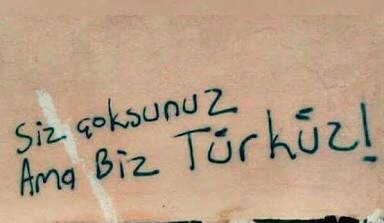 Siz çoksunuz
Ama Biz Türküz!